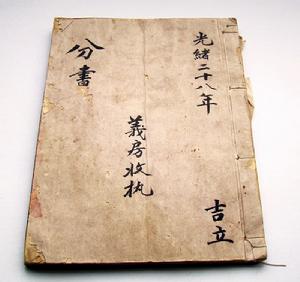 光緒二十八年
吉立
義房收执
分書